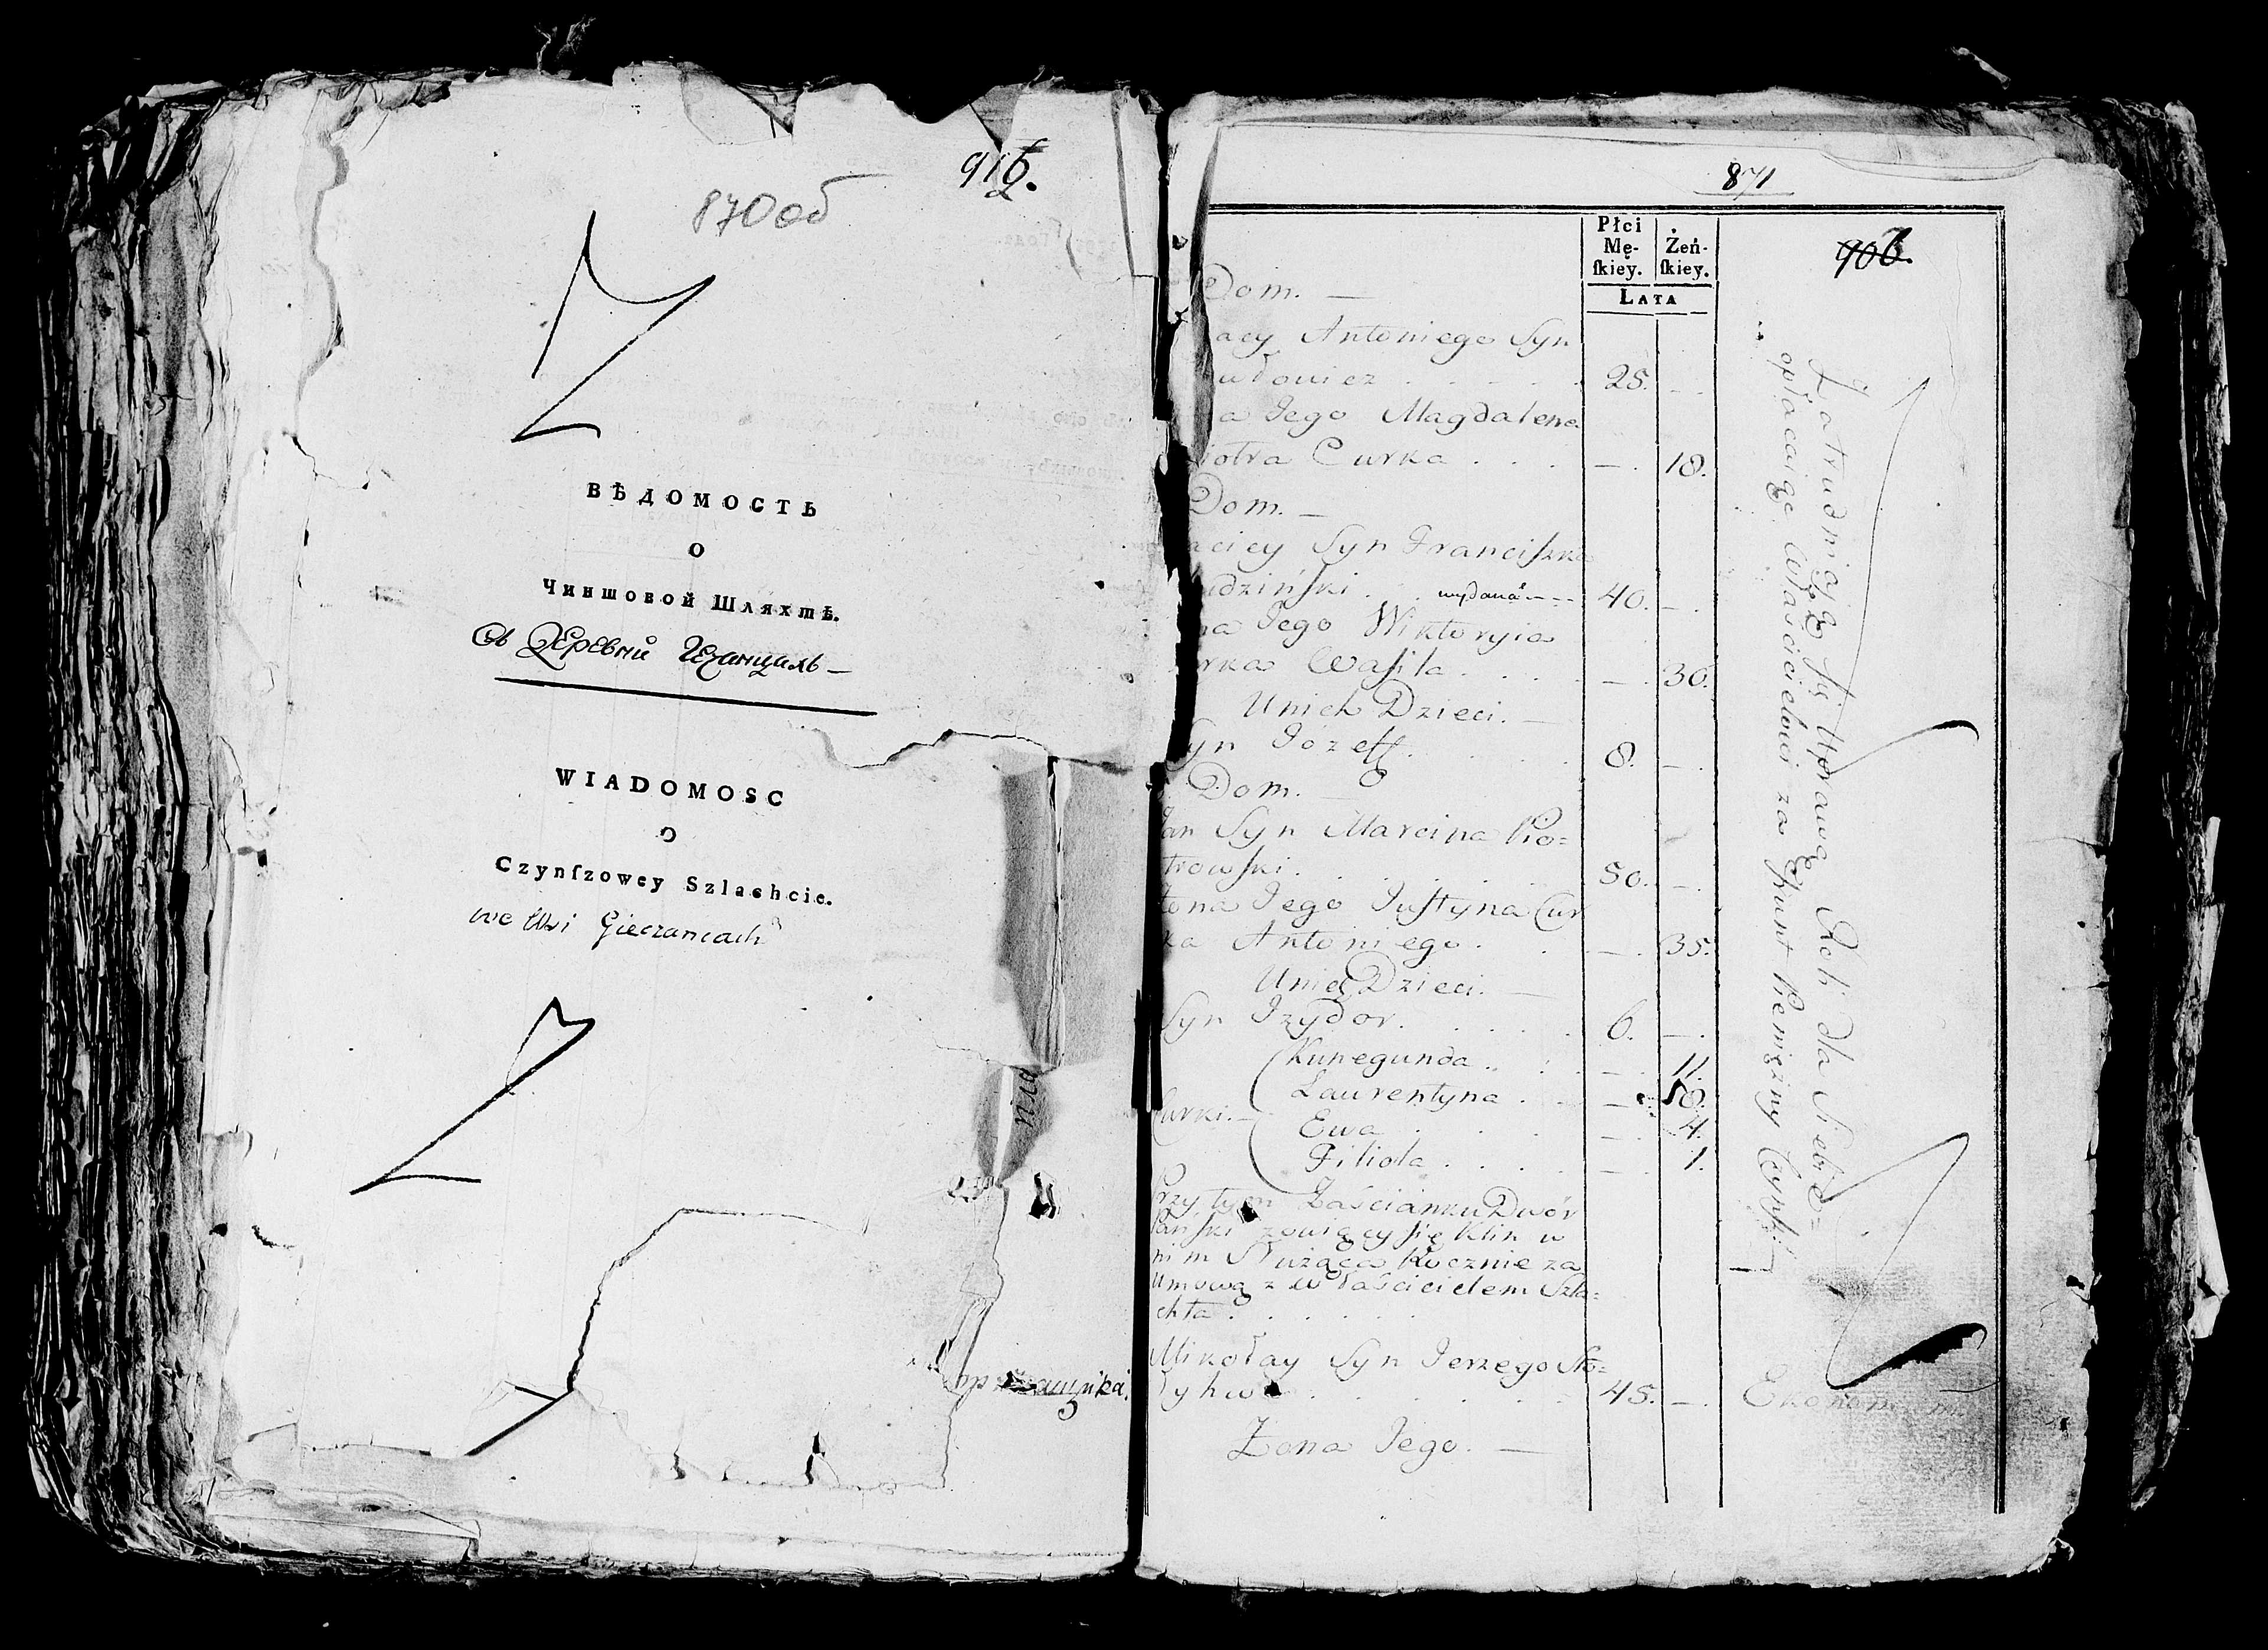 870 об
ВѢДОМОСТЬ
О
Чиншовой Шляхтѣ.
WIADOMOSC
O
Czynſzowey Szlachcie.
we Wsi Gieczancach
871
906.
Płci
Mę-
ſkiey.
Żeń-
ſkiey.
LATA
Dom. —
acy Antoniego Syn
udowicz . . . . 25. —
na Jego Magdalena
iotra Curka . . . — . 18.
Dom. —
aciey Syn Franciſzka
udzińſki . . 40. — .
na Jego Wiktoryia
urka Waſila . . . . — . 30.
Unich Dzieci. —
yn Józeff. . . . 8. — .
Dom. —
Jan Syn Marcina Pio=
trowſki. . . . . 50. — .
żona Jego Juſtyna Cur
ka Antoniego . . — . 35.
Unich Dzieci. —
Syn Izydor. . . . . 6. — .
Kunegunda . . : — . 11.
Laurentyna . . — .
Curki. — Ewa . . . — . 4.
Filiola . . . . — . 1.
Przy tym Zaścianku Dwór
Pańſki zowiący ſię Klin w
nim Służąca Rocznie za
Umową z właścicielem Szla=
chta . . . . . .
Mikołay Syn Jerzego
45. — .
Żona Jego. —
Zatrudniaią ſię Uprawą Roli dla Siebie=
opłacaiąc Właścicielowi za Grunt Pieniężny Czynſz